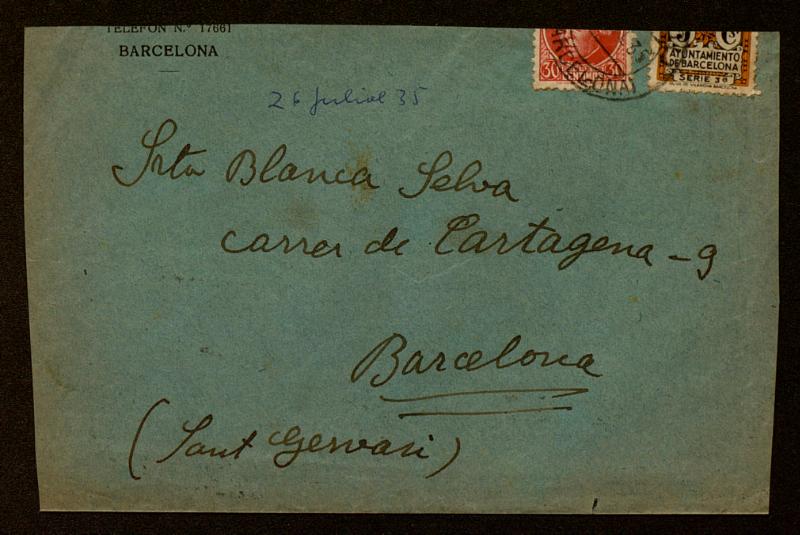 TELEFON N.º 17661
BARCELONA
26 juliol 35
Srta Blanca Selva
carrer de Cartagena - 9
Barcelona
(Sant Gervasi)
30 30
BARCELONA
35
5 C
AYUNTAMIENTO
DE BARCELONA
SERIE 3ª